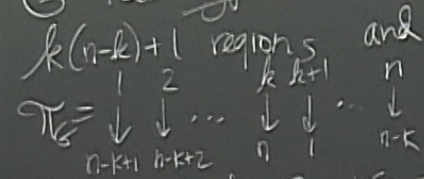 k(n-k)+1 regions and
1 2 k k+1 n
π_G = ↓ ↓ ... ↓ ↓ ... ↓
n-k+1 n-k+2 n 1 n-k